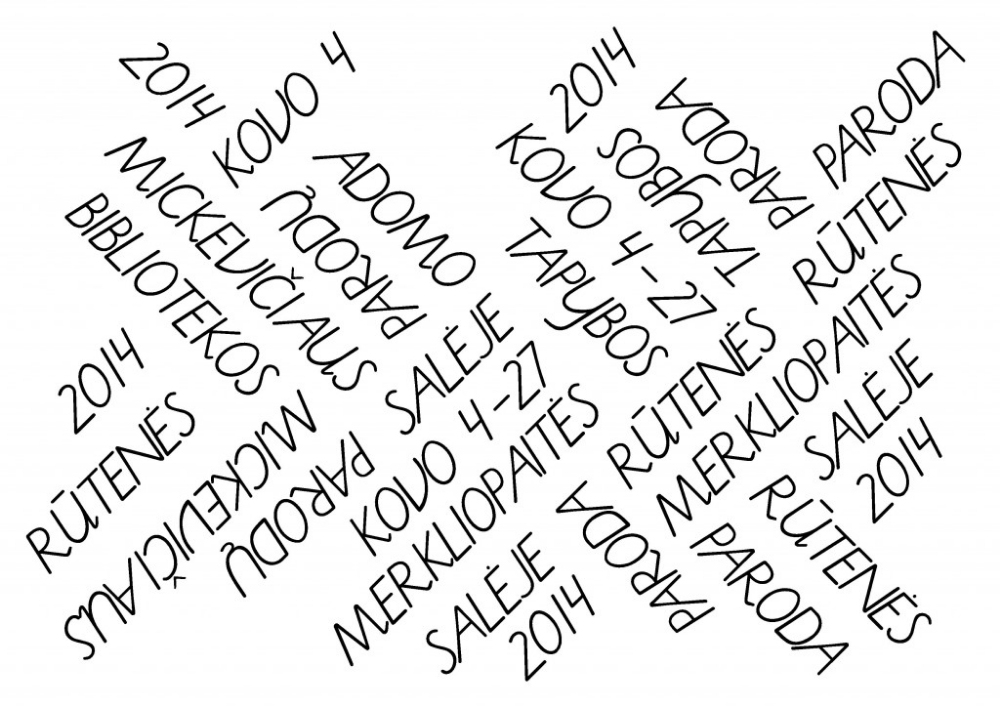 2014
KOVO 4
MICKEVIČIAUS
BIBLIOTEKOS
ADOMO
PARODŲ
2014
KOVO
4 - 27
TAPYBOS
PARODA
TAPYBOS
PARODA
RŪTENĖS
MERKLIOPAITĖS
SALĖJE
2014
2014
RŪTENĖS
MICKEVIČIAUS
PARODŲ
SALĖJE
KOVO 4-27
MERKLIOPAITĖS
SALĖJE
2014
RŪTENĖS
PARODA
PARODA
RŪTENĖS